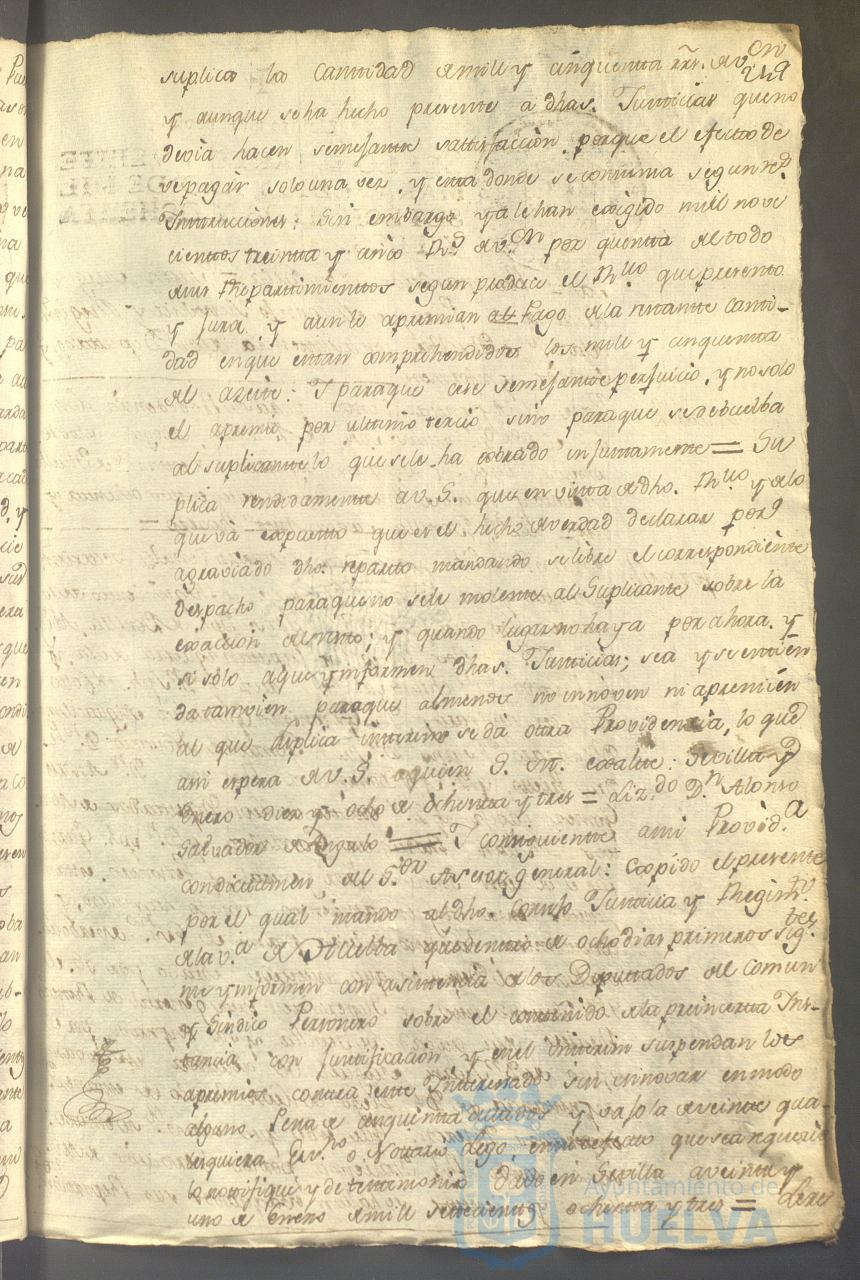 suplico la Cantidad de mill y cinquenta rrs. de v.on
249
y aunque se ha hecho presente a dhas. Justicias que no
devia hacer semejante satisfacción, porque el efecto de
se pagar solo una vez, y es a donde se consuma segun rd.
Instrucciones: Sin embargo ya le han exigido mil nove
cientos treinta y cinco Rs de v.on por quenta de todo
sus Repartimientos segun produce el Rvo que presento
y Jura y aun le apremian al Pago de la restante Canti-
dad en que estan comprehendidos los mill y cinquenta
del azeite: Y para que cese semejante perjuicio, y no solo
el apremio por ultimo tercio sino para que se debuelba
al suplicante lo que se le ha cobrado injustamente = Su
plica rendidamente a V.S. que en vista de dho. Rvo y de lo
que vá expuesto que es el hecho de verdad declarar por
agraviado dho. reparto mandando se libre el correspondiente
despacho para que no se le moleste al Suplicante sobre la
exaccion de resto; y quando lugar no haya por ahora. y
si solo a que ynformen dhas. Justicias; sea y se entien
da tambien para que al menos no innoven ni apremien
al que suplica interin se dá otra Providencia, lo que
asi espera de V.S. aquien G. m. exalte: Sevilla y
Enero diez y ocho de ochenta y tres = Liz.do Dn Alonso
Salvador = Y consiguiente a mi Provid.a
con dictamen del S.or Asesor General: Expido el presente
por el qual mando al dho. Consejo Justicia y Regim.to
de la v.a de Huelba que dentro de ocho dias primeros sig.tes
me ynformen con asistencia de los Diputados del Comun
y Sindico Personero sobre el contenido de la preinserta Ins-
tancia con justificación y en el interin suspendan los
apremios contra este Interesado sin innovar en modo
alguno Pena de cinquenta ducados y vajo la de veinte qua-
lesquiera Esn.no o Notario Lego, en que sea requerido
lo notifique y de testimonio Dado en Sevilla a veinte y
uno de Enero de mill setecientos ochenta y tres =
Ayuntamiento de
HUELVA